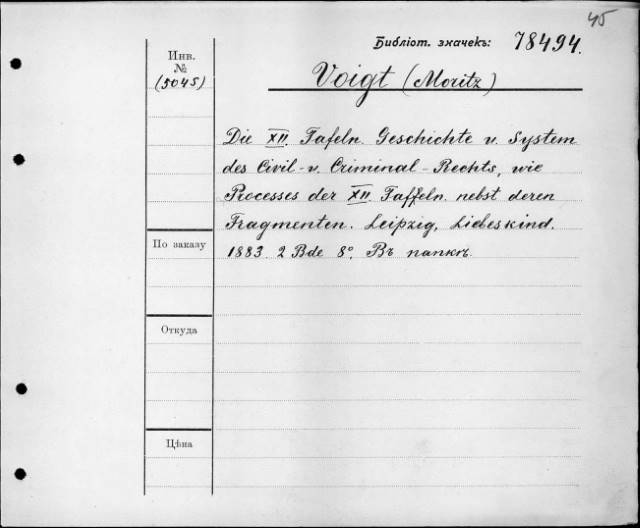 45
Библіот. значекъ: 78494.
Инв.
№
(5045)
Voigt (Moritz)
Die XII. Tafeln. Geschichte u. System
des Civil- u. Criminal-Rechts, wie
Processes der XII. Taffeln. nebst deren
Fragmenten. Leipzig, Liebeskind.
1883 2 Bde 8º. Въ папкѣ.
По заказу
Откуда
Цѣна